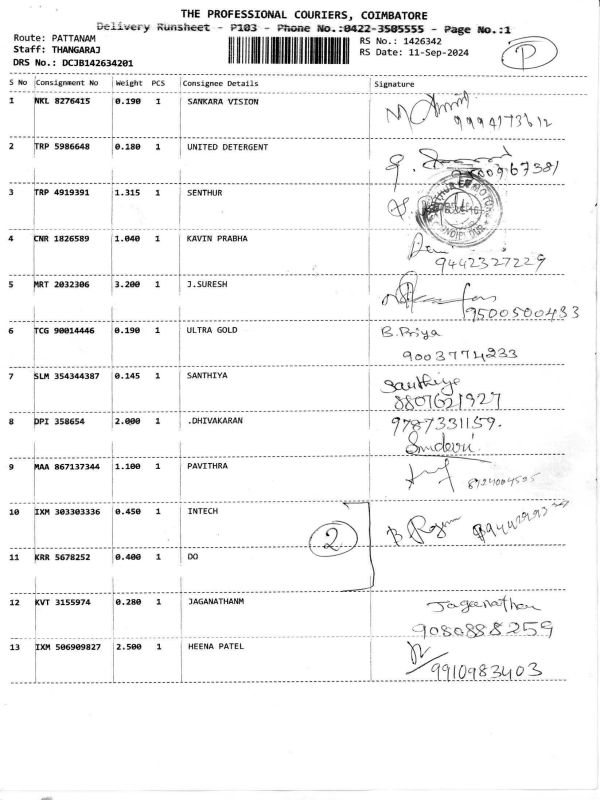 THE PROFESSIONAL COURIERS, COIMBATORE
Delivery Runsheet - P103 - Phone No.:0422-3505555 - Page No.:1
Route: PATTANAM
Staff: THANGARAJ
DRS No.: DCJB142634201
RS No.: 1426342
RS Date: 11-Sep-2024
P
S No Consignment No Weight PCS Consignee Details Signature
1 NKL 8276415 0.190 1 SANKARA VISION
9994173612
2 TRP 5986648 0.180 1 UNITED DETERGENT
3 TRP 4919391 1.315 1 SENTHUR
4 CNR 1826589 1.040 1 KAVIN PRABHA
9442327229
5 MRT 2032306 3.200 1 J.SURESH
9500500433
6 TCG 90014446 0.190 1 ULTRA GOLD B.Priya
9003774233
7 SLM 354344387 0.145 1 SANTHIYA Santhiya
8807621927
8 DPI 358654 2.000 1 .DHIVAKARAN 9787331159.
Sridevi
9 MAA 867137344 1.100 1 PAVITHRA
10 IXM 303303336 0.450 1 INTECH
2
11 KRR 5678252 0.400 1 DO
12 KVT 3155974 0.280 1 JAGANATHANM Jaganathan
9080888259
13 IXM 506909827 2.500 1 HEENA PATEL
9910983403